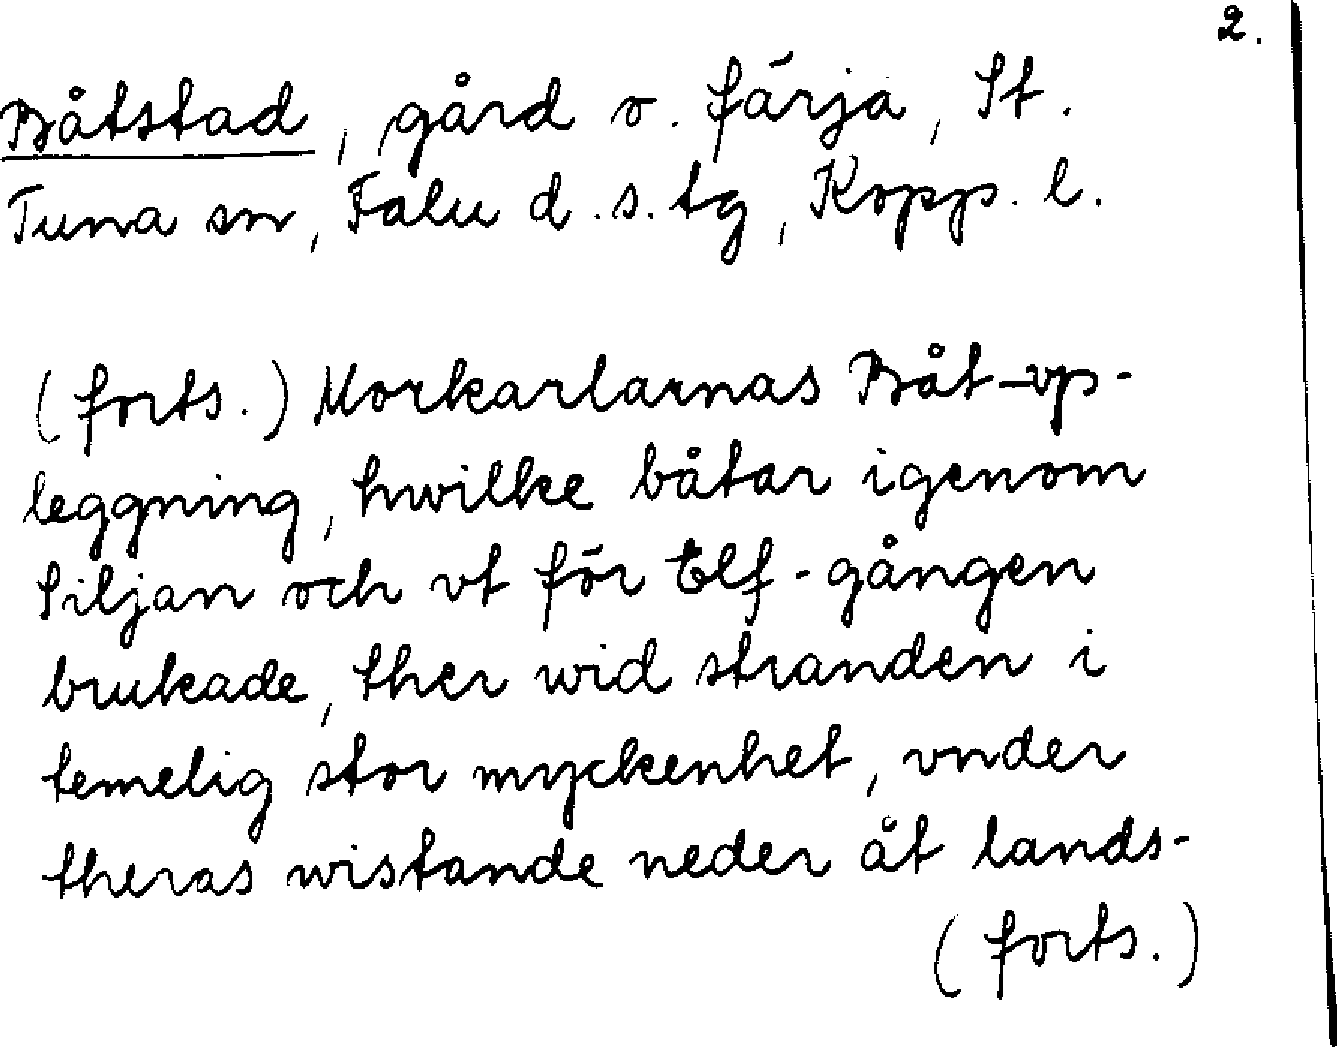 2.
Båtstad, gård o. färja, St.
Tuna sn, Falu d.s. tg, Kopp. l.
(forts.) Morkarlarnas Båt-vp-
leggning, hwilke båtar igenom
Siljan och vt för Elf-gången
brukade, ther wid stranden i
temelig stor myckenhet, vnder
theras wistande neder åt lands-
(forts.)